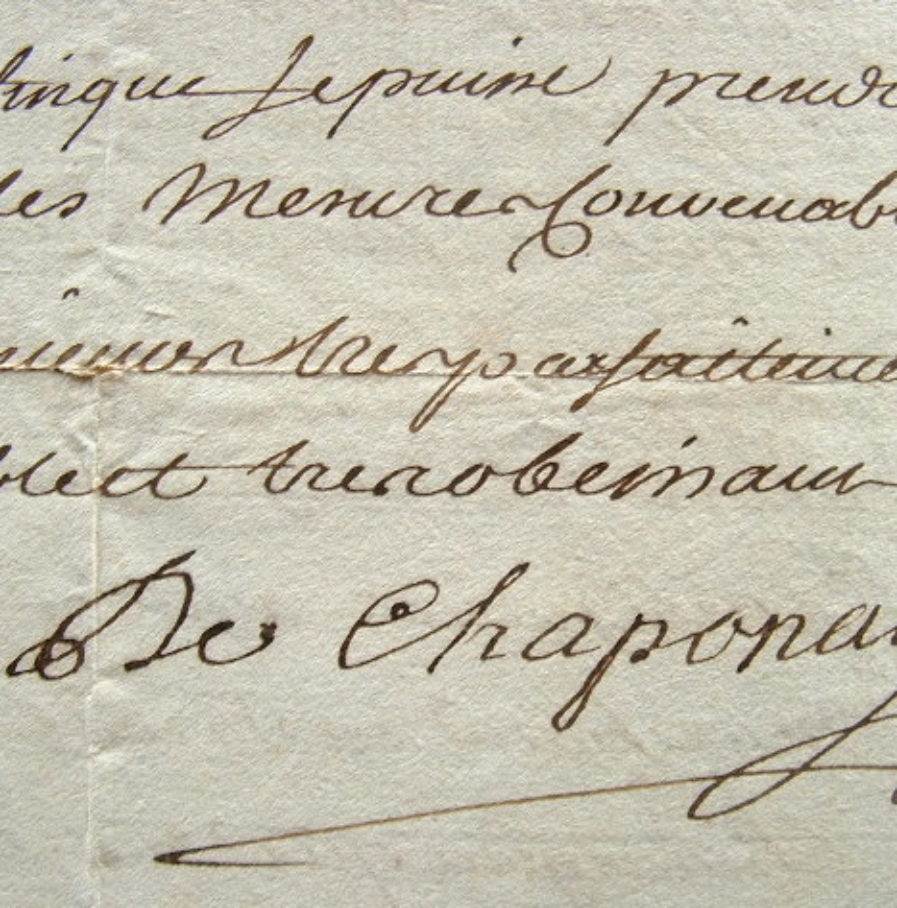 que Je puisse prendr
les Mesures Convenab
tres parfaitteme
et tres obeissant
De Chapona